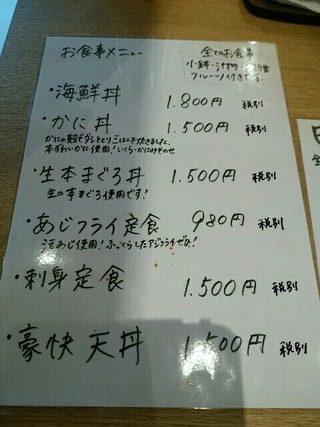 お食事メニュー
全てのお食事
小鉢・汁物・
フルーツ付きです。
・海鮮丼 1.800円 税別
・かに丼 1.500円 税別
かにの殻でダシをとりごはんを炊きました。
本ずわいかに使用!いくら・かにみそのせ
・生本まぐろ丼 1.500円 税別
生の本まぐろ使用です!
・あじフライ定食 980円 税別
活あじ使用!ふっくらしたアジフライぜひ!
・刺身定食 1.500円 税別
・豪快天丼 1.500円 税別